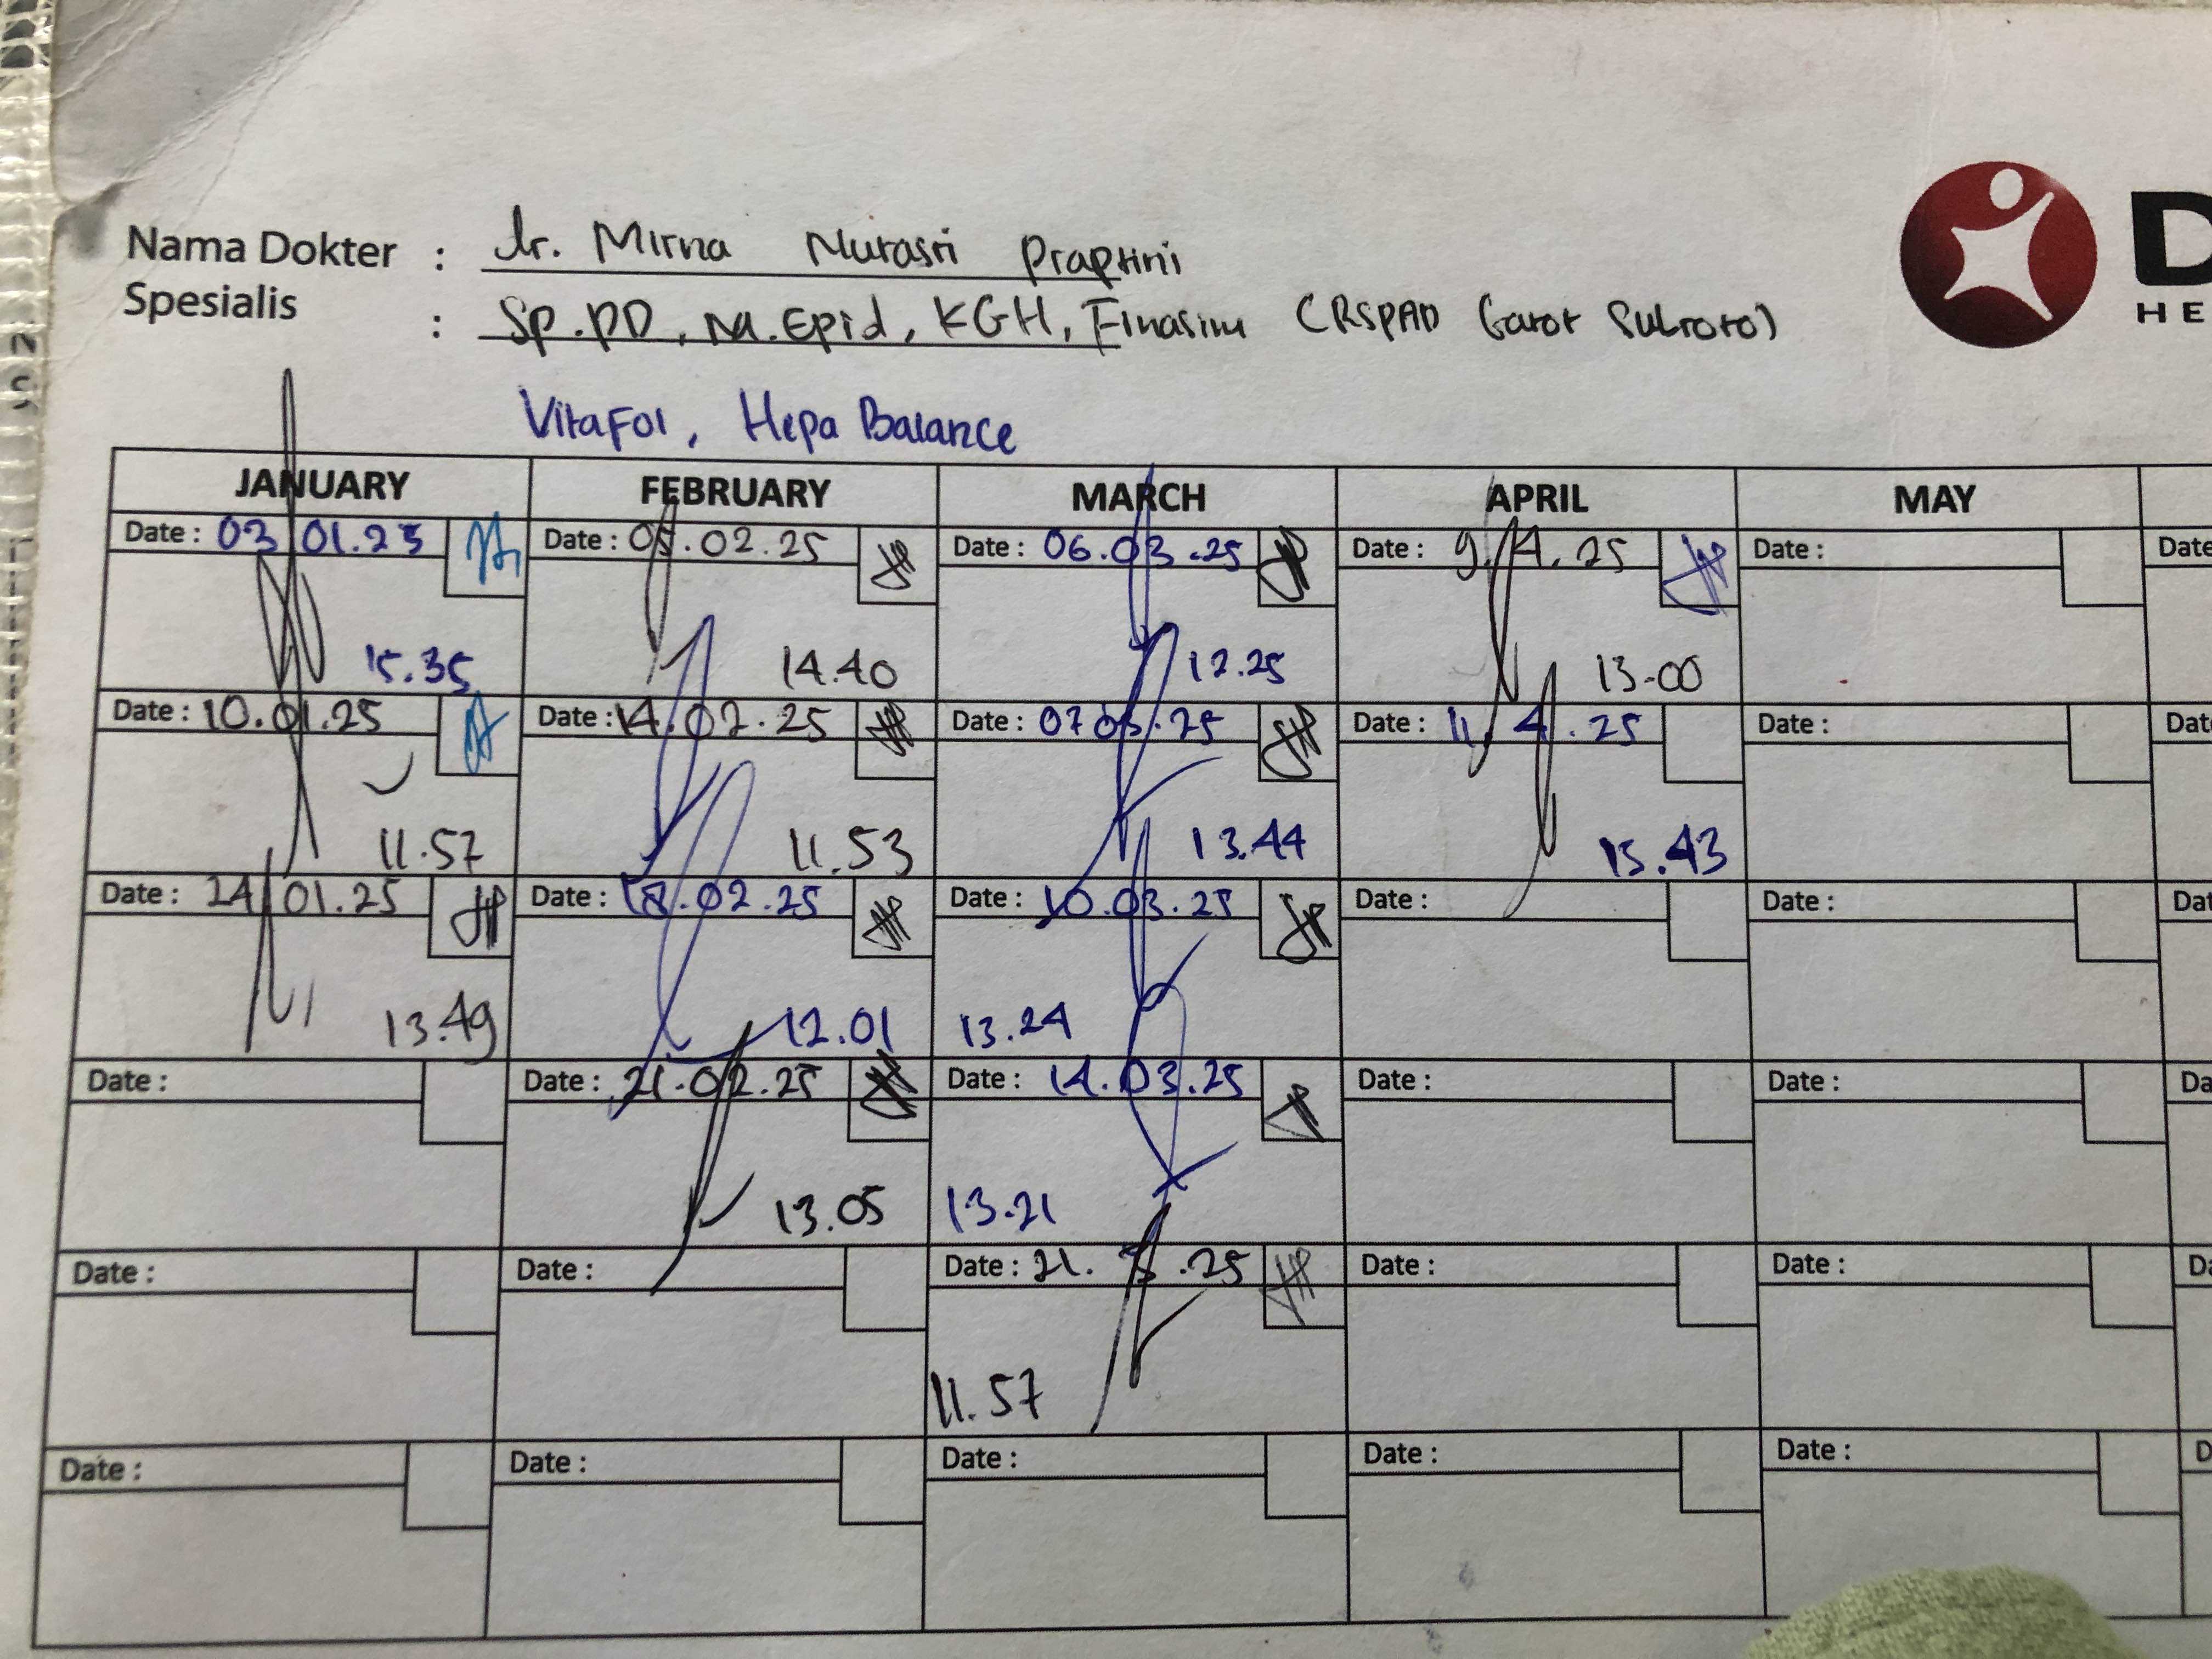 Nama Dokter : dr. Mirna Nurasri Praptini
Spesialis : Sp.PD, M.Epid, KGH, Finasim (RSPAD Gatot Subroto)
D
HE
Vitafol, Hepa Balance
JANUARY FEBRUARY MARCH APRIL MAY
Date : 03 01.25 Date : 05.02.25 Date : 06.03.25 Date : 9.4.25 Date : Date
15.35 14.40 12.25 13.00
Date : 10.01.25 Date : 14.02.25 Date : 07 03.25 Date : 11.4.25 Date : Dat
11.57 11.53 13.44 15.43
Date : 24 01.25 Date : 18.02.25 Date : 10.03.25 Date : Date : Dat
13.49 12.01 13.24
Date : Date : 21.02.25 Date : 14.03.25 Date : Date : Da
13.05 13.21
Date : Date : Date : 21. 3.25 Date : Date : Da
11.57
Date : Date : Date : Date : Date : D